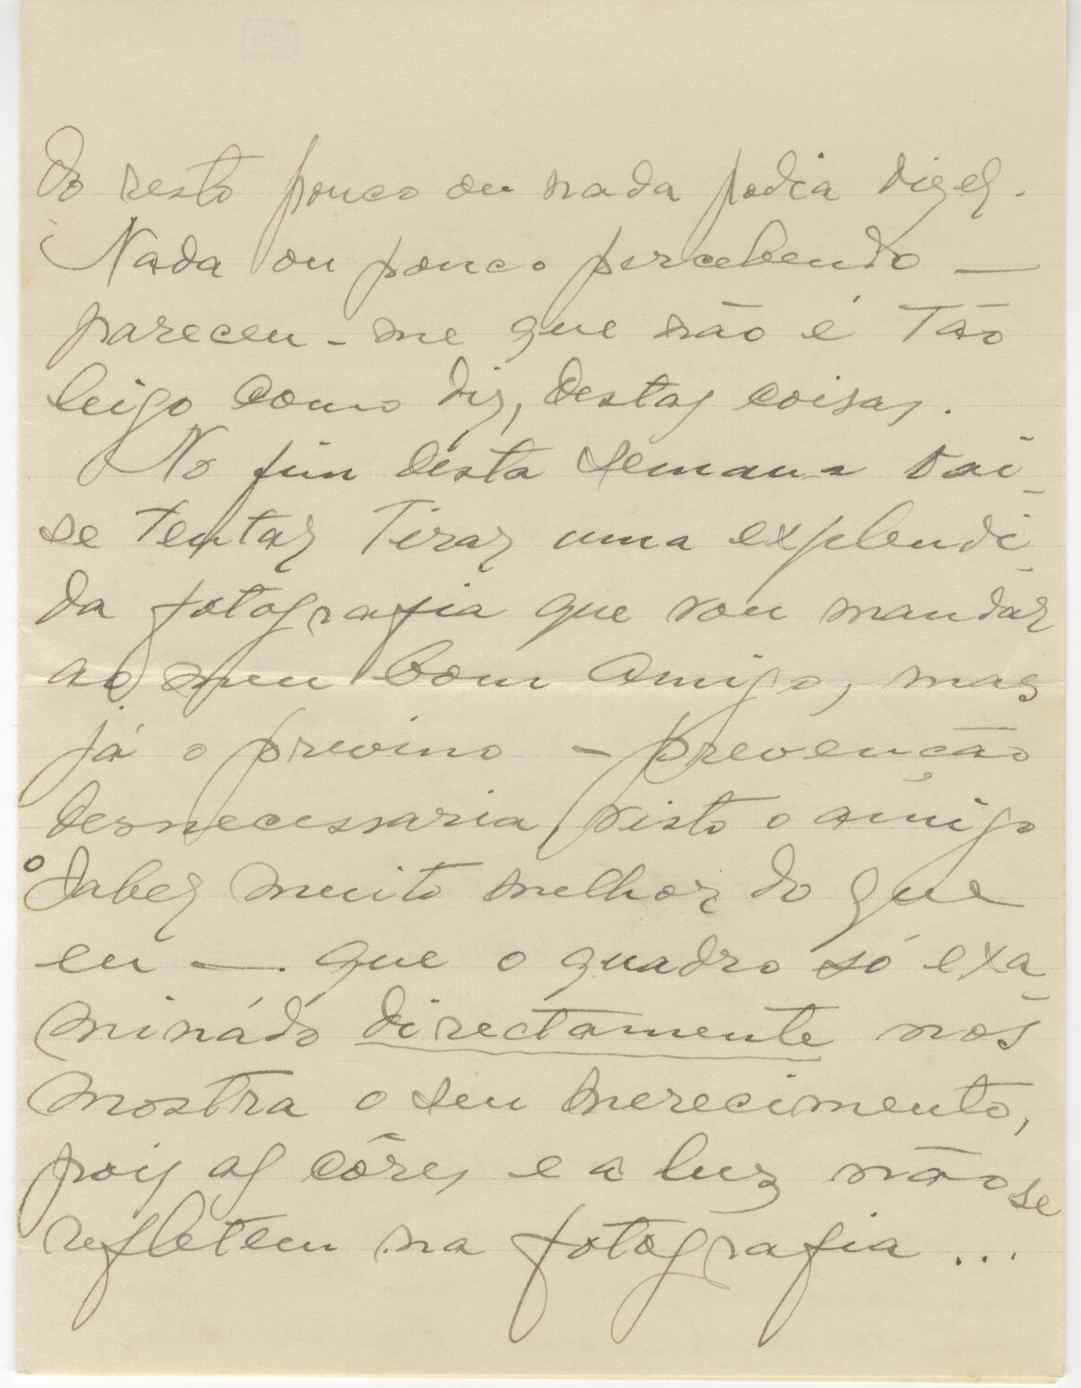 Do resto pouco ou nada podia dizer.
Nada ou pouco percebendo —
pareceu-me que não é Tão
leigo como diz, destas coisas.
No fim desta semana vai-
se tentar Tirar uma explendi-
da fotografia que vou mandar
ao meu bom amigo, mas
já o previno — prevenção
desnecessaria, visto o amigo
o saber muito melhor do que
eu —. que o quadro só exa-
minádo directamente nos
mostra o seu merecimento,
pois as côres e a luz não se
refletem na fotografia ...